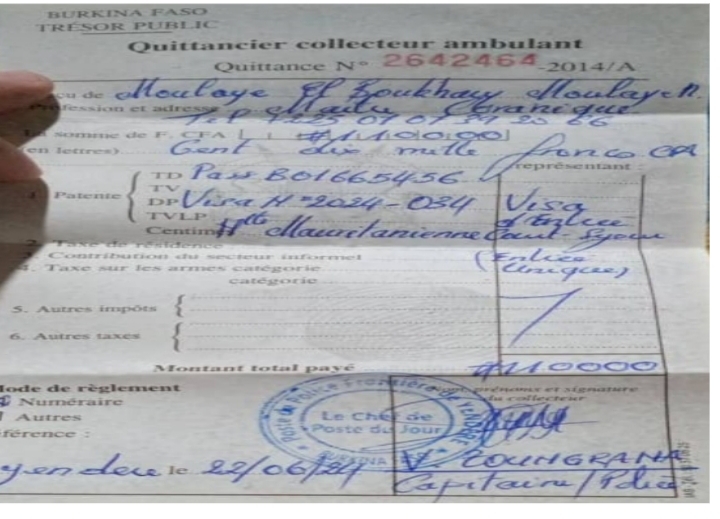 BURKINA FASO
TRÉSOR PUBLIC
Quittancier collecteur ambulant
Quittance N° 2642464 -2014/A
çu de Moulaye El Boukhary Moulaye
fession et adresse Maitre Coranique
Tel +225 07 07
somme de F. CFA #110000
en lettres) Cent dix mille francs CFA
représentant :
TD Pass B01665456
TV
1. Patente { DP Visa N°2024-034 Visa
TVLP d'Entrée
Centim Nlle Mauritanienne Court-Séjour
2. Taxe de résidence
3. Contribution du secteur informel (Entrée
4. Taxe sur les armes catégorie Unique)
catégorie
5. Autres impôts {
6. Autres taxes {
Montant total payé #110000
Mode de règlement
prénoms et signature
du collecteur
Numéraire
Autres
férence :
Poste de Police Frontière de Yendéré
Le Chef de
Poste du Jour
BURKINA FASO
Yendere le 22/06/24
ZOUNGRANA
Capitaine/Police